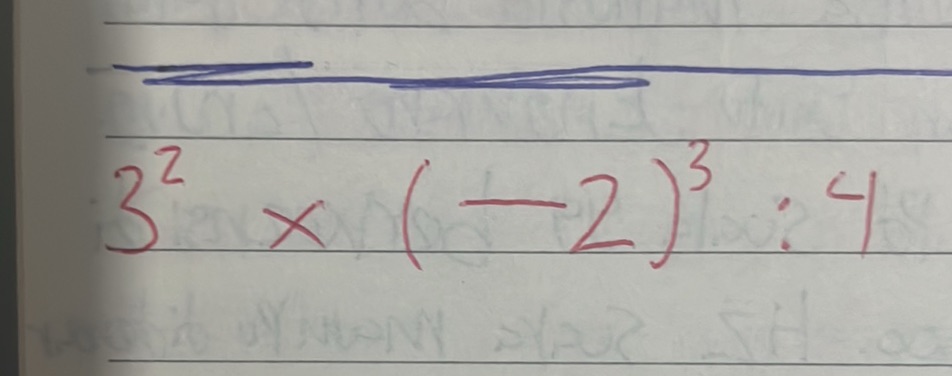 3² × (−2)³ : 4